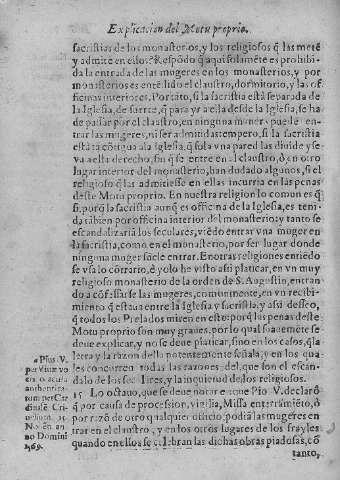 Explicacion del Motu proprio.
sacristias de los monasterios, y los religiosos q̃ las metẽ
y admitẽ en ellos? Respõdo q̃ aqui solamẽte es prohibi-
da la entrada de las mugeres en los monasterios, y por
monasterios es entẽdido el claustro, dormitorio, y las of-
ficinas interiores. Portãto, si la sacristia està separada de
la Iglesia, de suerte, q̃ para yr a ella desde la Iglesia, se ha
de passar por el claustro, en ninguna manera puedẽ en-
trar las mugeres, ni ser admitidas tempero, si la sacristia
està tã cõtigua a la Iglesia, q̃ sola vna pared las diuide y se
va a ella derecho, sin q̃ se entre en el claustro, ò en otro
lugar interior del monasterio, han dudado algunos, si el
religioso q̃ las admitiesse en ellas incurria en las penas
deste Motu proprio. En nuestra religion lo comun es q̃
si, porq̃ la sacristia aunq̃ es officina de la Iglesia, es teni-
da tãbien por officina interior del monasterio; y tanto se
escandalizariã los seculares, viẽdo entrar vna muger en
la sacristia, como en el monasterio, por ser lugar donde
ninguna muger suele entrar. En otras religiones entiẽdo
se vsa lo cõtrario, è yo lo he visto assi platicar, en vn muy
religioso monasterio de la orden de S. Augustin, entran
do a cõfessarse las mugeres, comunmente, en vn recibi-
miento, q̃ estaua entre la Iglesia y sacristia, y assi desseo,
q̃ todos los Prelados miren en esto: porq̃ las penas deste
Motu proprio son muy graues, por lo qual suauemẽte se
deue explicar, y no se deue platicar, sino en los casos, q̃ la
letra y la razon della potentemente señala, y en los qua-
les concurren todas las razones del, que son el escan-
dalo de los seculares, y la inquietud de los religiosos.
15 Lo octauo, que se deue notar es que Pio V. declarò
q̃ por causa de procession, vigilia, Missa enterramiẽto, ò
por razõ de otro qualquier officio, podiã las mugeres en
trar en el claustro, y en los otros lugares de los frayles
quando en ellos se celebran las dichas obras piadosas, cõ
tanto,
a Pius V.
per viuæ vo
cis oraculũ
authentica-
tum per Car
dinalẽ Cri-
Nouẽ. an-
no Domini
1569.